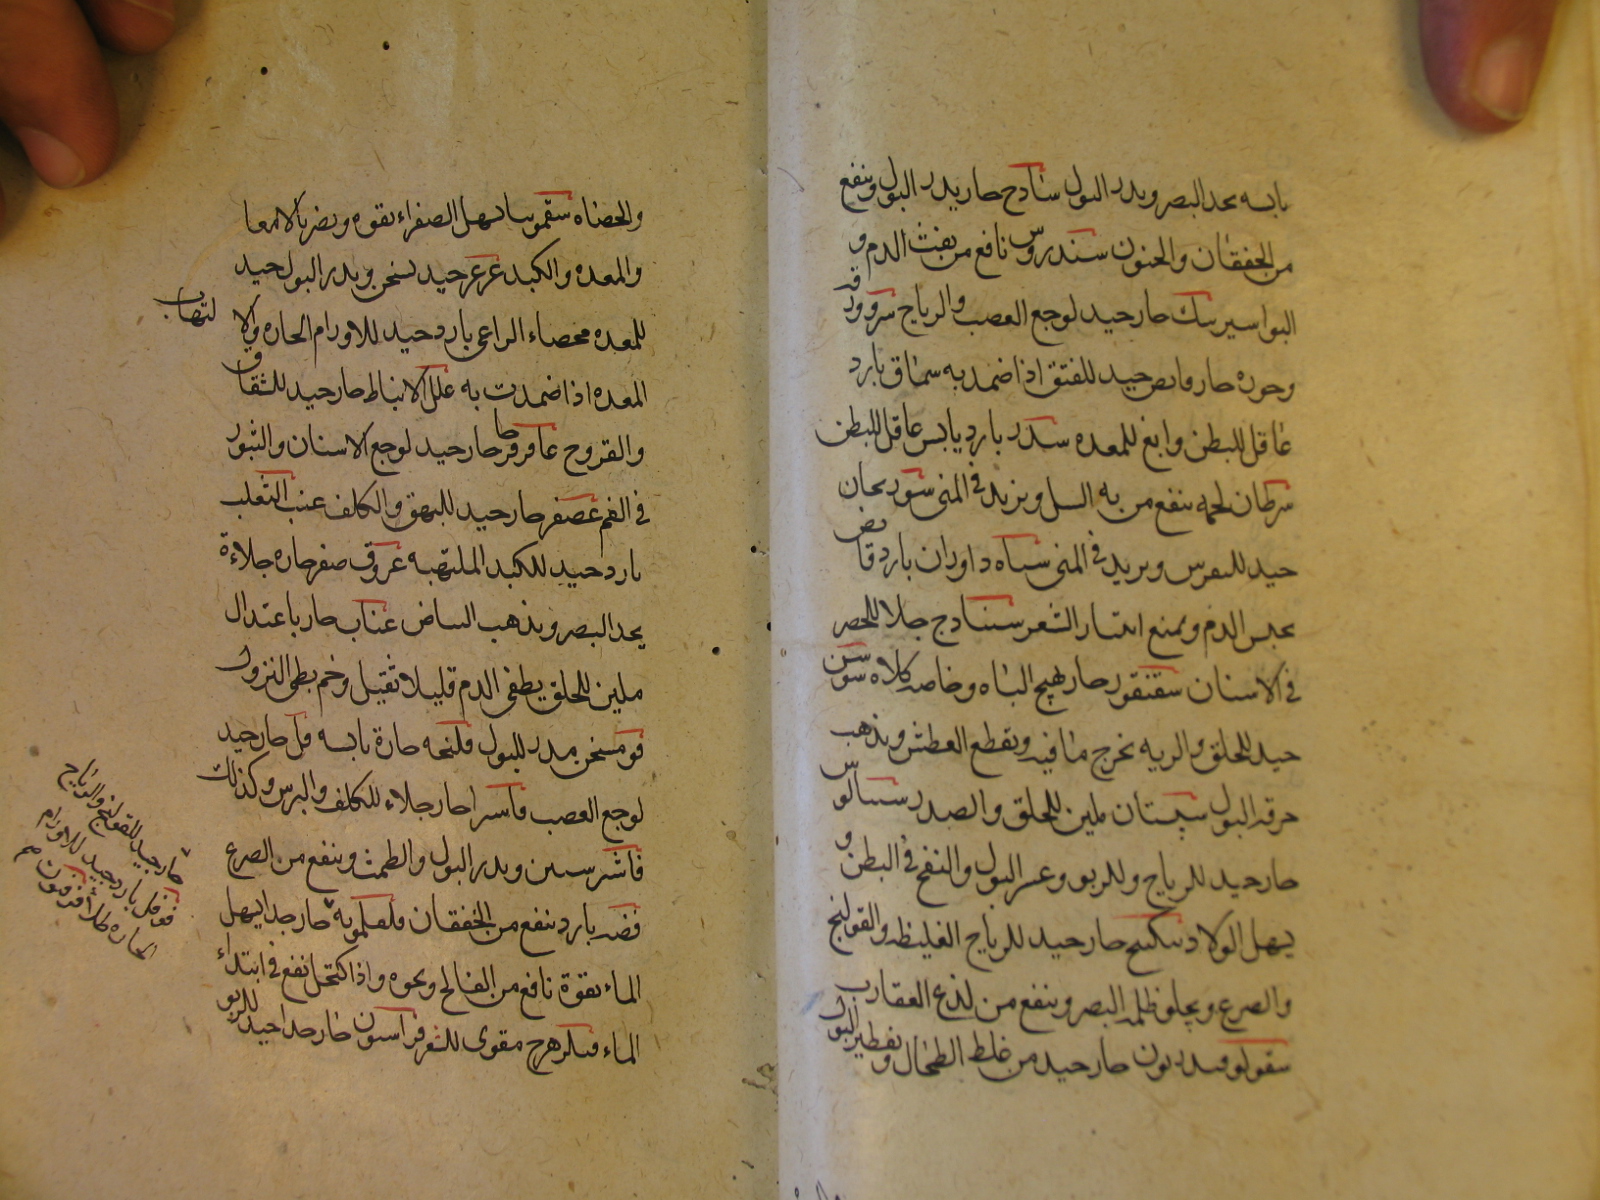 يابسه يحد البصر ويدر البول ساذج حار يدر البول وينفع
من الخفقان والجنون سندروس نافع من نفث الدم و
البواسير سك حار جيد لوجع العصب والرياح سرو ورقه
وجوزه حار قابض جيد للفتق اذا ضمد به سماق بارد
عاقل للبطن دابغ للمعده سدر بارد يابس عاقل للبطن
سرطان لحمه ينفع من به السل ويزيد في المنى سورنجان
جيد للنقرس ويزيد في المنى سياه داوران بارد قابض
يحبس الدم ويمنع انتثار الشعر سنبادج جلا للحصر
في الاسنان سقنقور حار يهيج الباه وخاصه كلاه سوسن
جيد للحلق والريه يخرج ما فيه ويقطع العطش ويذهب
حرقه البول سپستان ملين للحلق والصدر سساليوس
حار جيد للرياح وللربو وعسر البول والنفخ في البطن و
يسهل الولاد سكبينج حار جيد للرياح الغليظه والقولنج
والصرع ويجلو ظلمه البصر وينفع من لدغ العقارب
سقولوقندريون حار جيد من غلظ الطحال وتقطير البول
والحصاه سقمونيا يسهل الصفراء بقوه ويضر بالامعا
والمعده والكبد عرعر جيد يسخن ويدر البول جيد
للمعده عصاء الراعى بارد جيد للاورام الحاره ولالتهاب
المعده اذا ضمدت به علك الانباط حار جيد للشقاق
والقروح عاقرقرحا حار جيد لوجع الاسنان والبثور
في الفم عصفر حار جيد للبهق والكلف عنب الثعلب
بارد جيد للكبد الملتهبه عروق صفر حاره جلاءة
يحد البصر ويذهب البياض عناب حار باعتدال
ملين للحلق يطفى الدم قليلا ثقيل وخم بطى النزول
فو مسخن مدر للبول فلنجه حارة يابسه فل حار جيد
لوجع العصب فاشرا حار جلاء للكلف والبرص وكذلك
فاشرستين ويدر البول والطمث وينفع من الصرع
فضه بارد ينفع من الخفقان فلفلمويه حار جدا يسهل
الماء بقوة نافع من الفالج ونحوه واذا كتحل نفع في ابتداء
الماء فيلزهرج مقوى للشعر فراسيون حار جدا جيد للربو
حار جيد للقولنج والرياح
فوفل بارد جيد للاورام
الحاره طلا أفرفيون